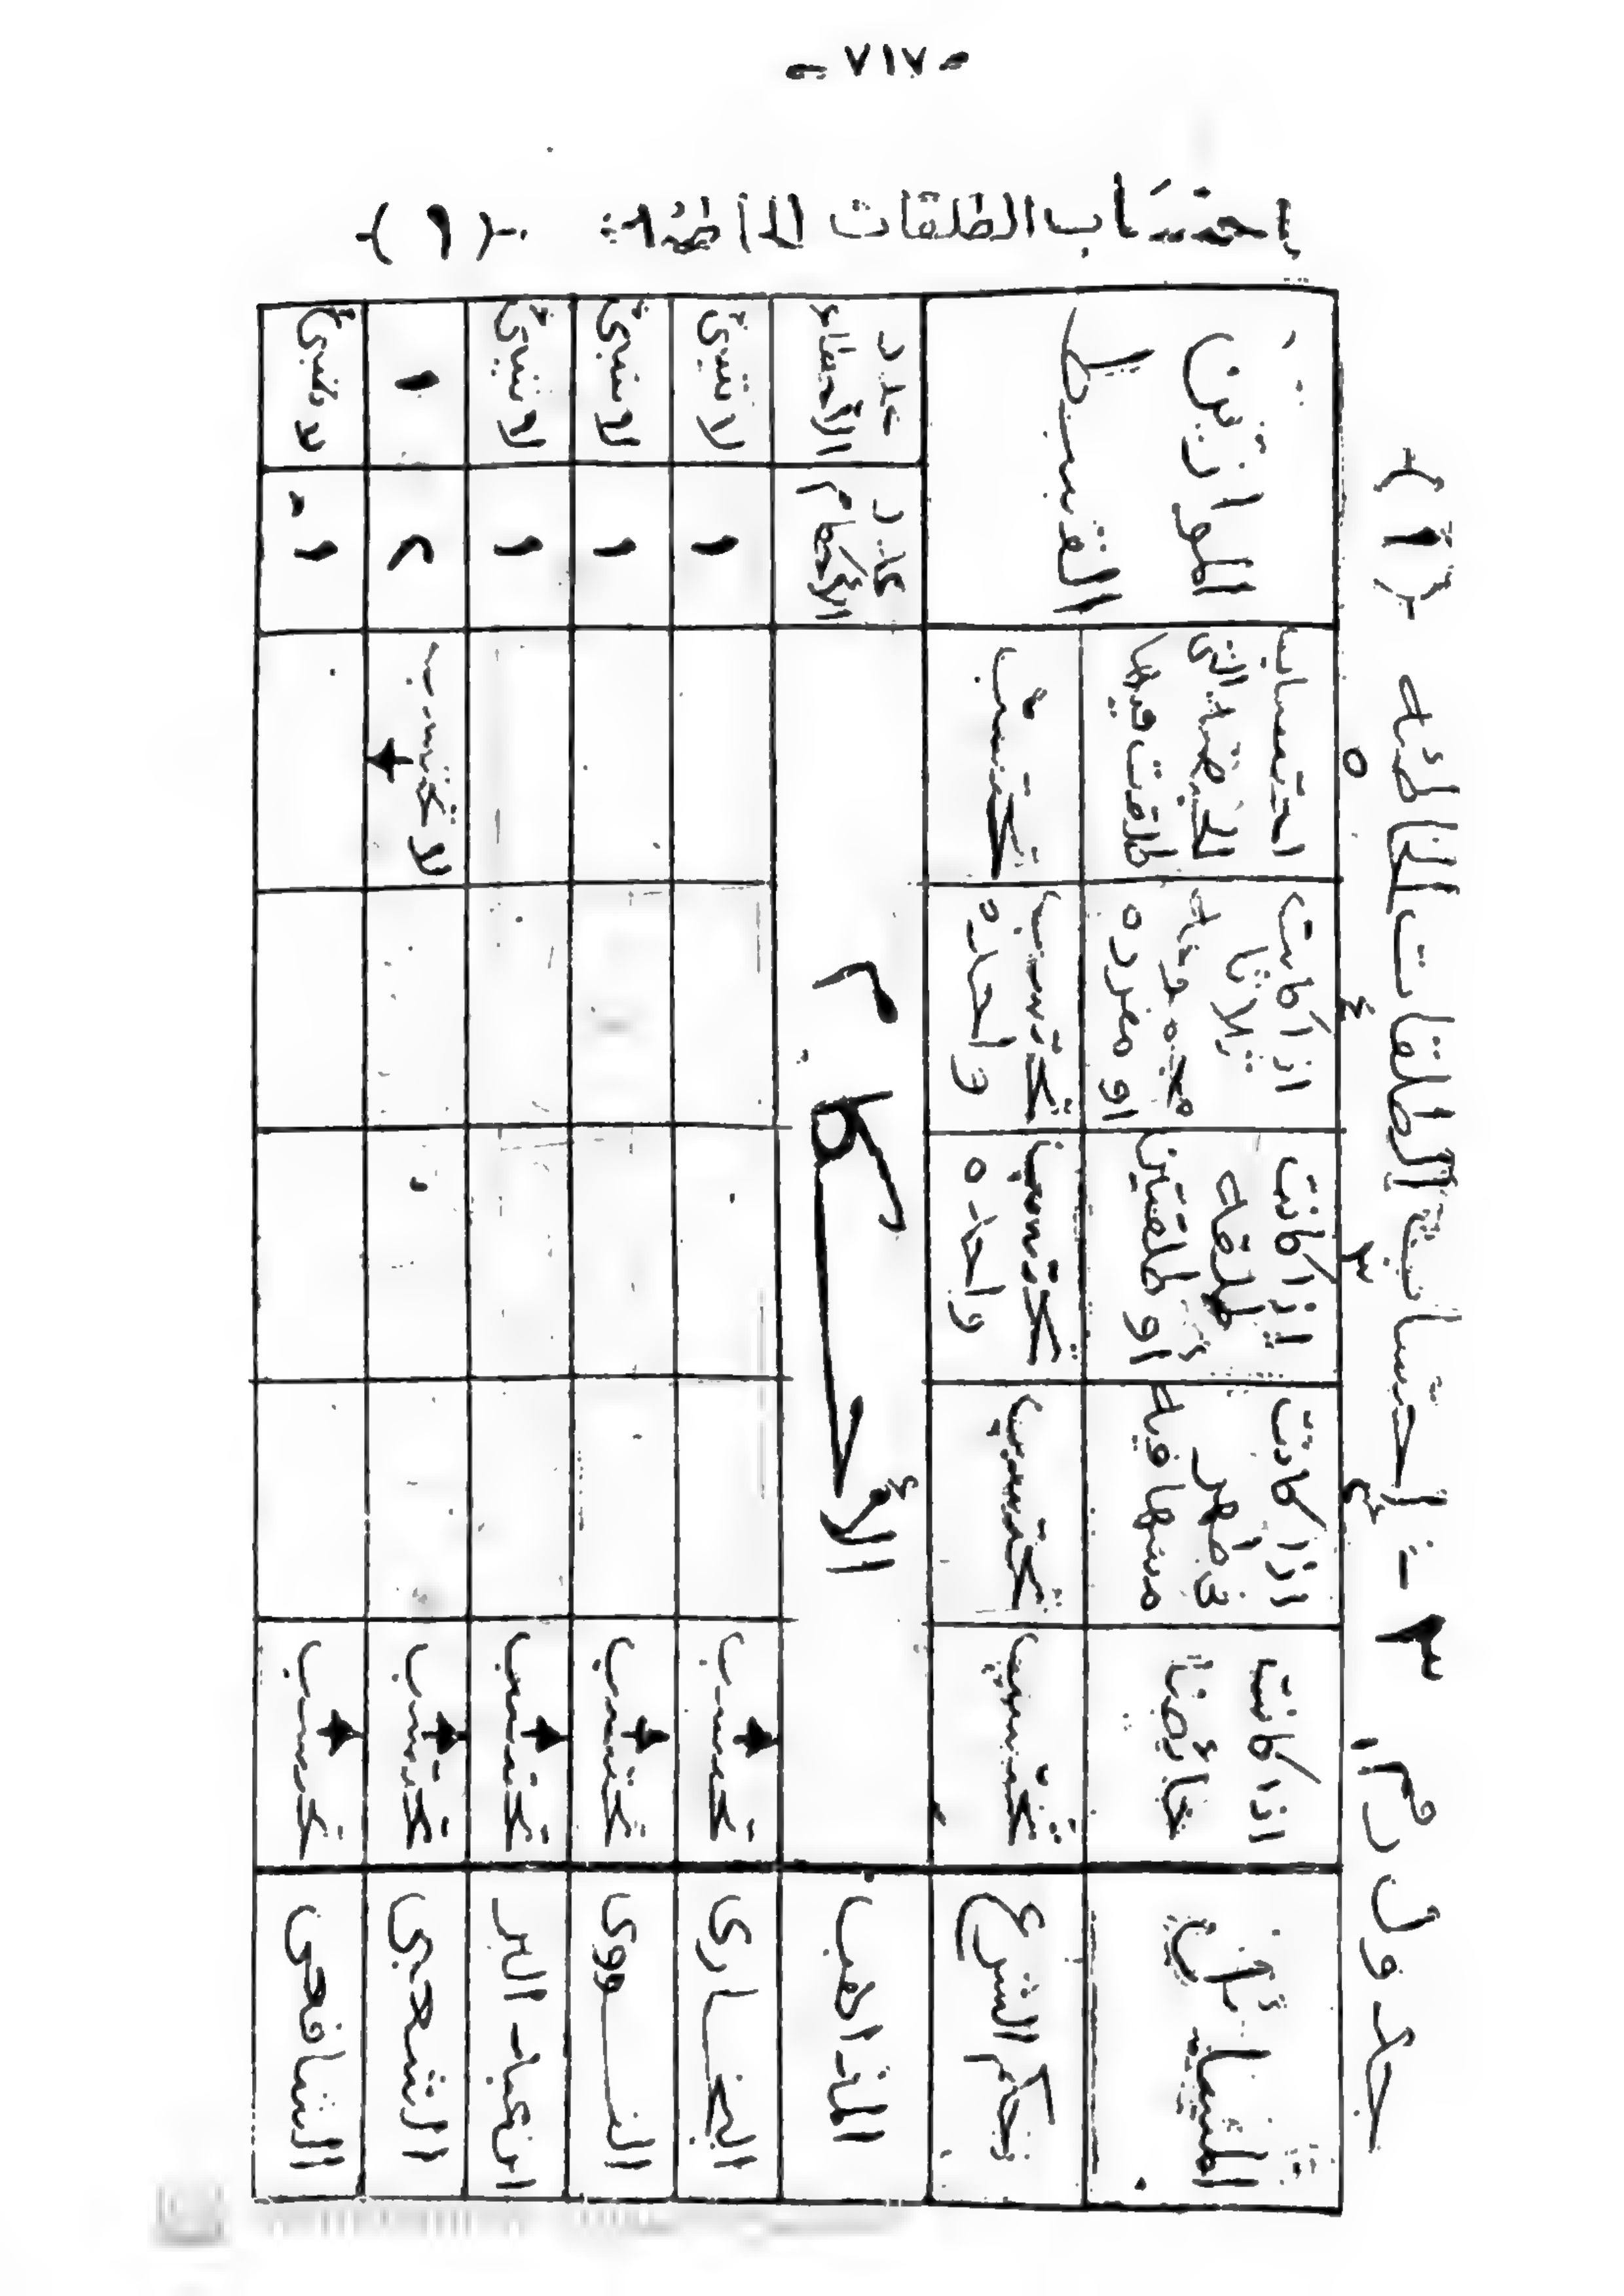 - ٧١٧ -
إحتساب الطلقات الخاطئة -(٢)-
جدول رقم ٣ - إحتساب الطلقات الخاطئه -(أ)-
المسائل
اذا كانت حائضا
اذا كانت فى طهر مسها فيه
اذا كانت طلقه أو طلقتين
اذا كانت ثلاثا مجموعه او مفرده
احتساب الحيضه التى طلقت فيها
الموازين القسط
حكم الشرع
تحتسب
تحتسب
تحتسب واحده
تحتسب واحده
تحتسب
المذاهب
الأحكام
عدد الأحكام
عدد الأخطاء
البخارى
تحتسب
١
لا شىء
النووى
تحتسب
١
لا شىء
ابن عبد البر
تحتسب
١
لا شىء
الشعبى
تحتسب
لا تحتسب
٢
١
الشافعى
تحتسب
١
لا شىء